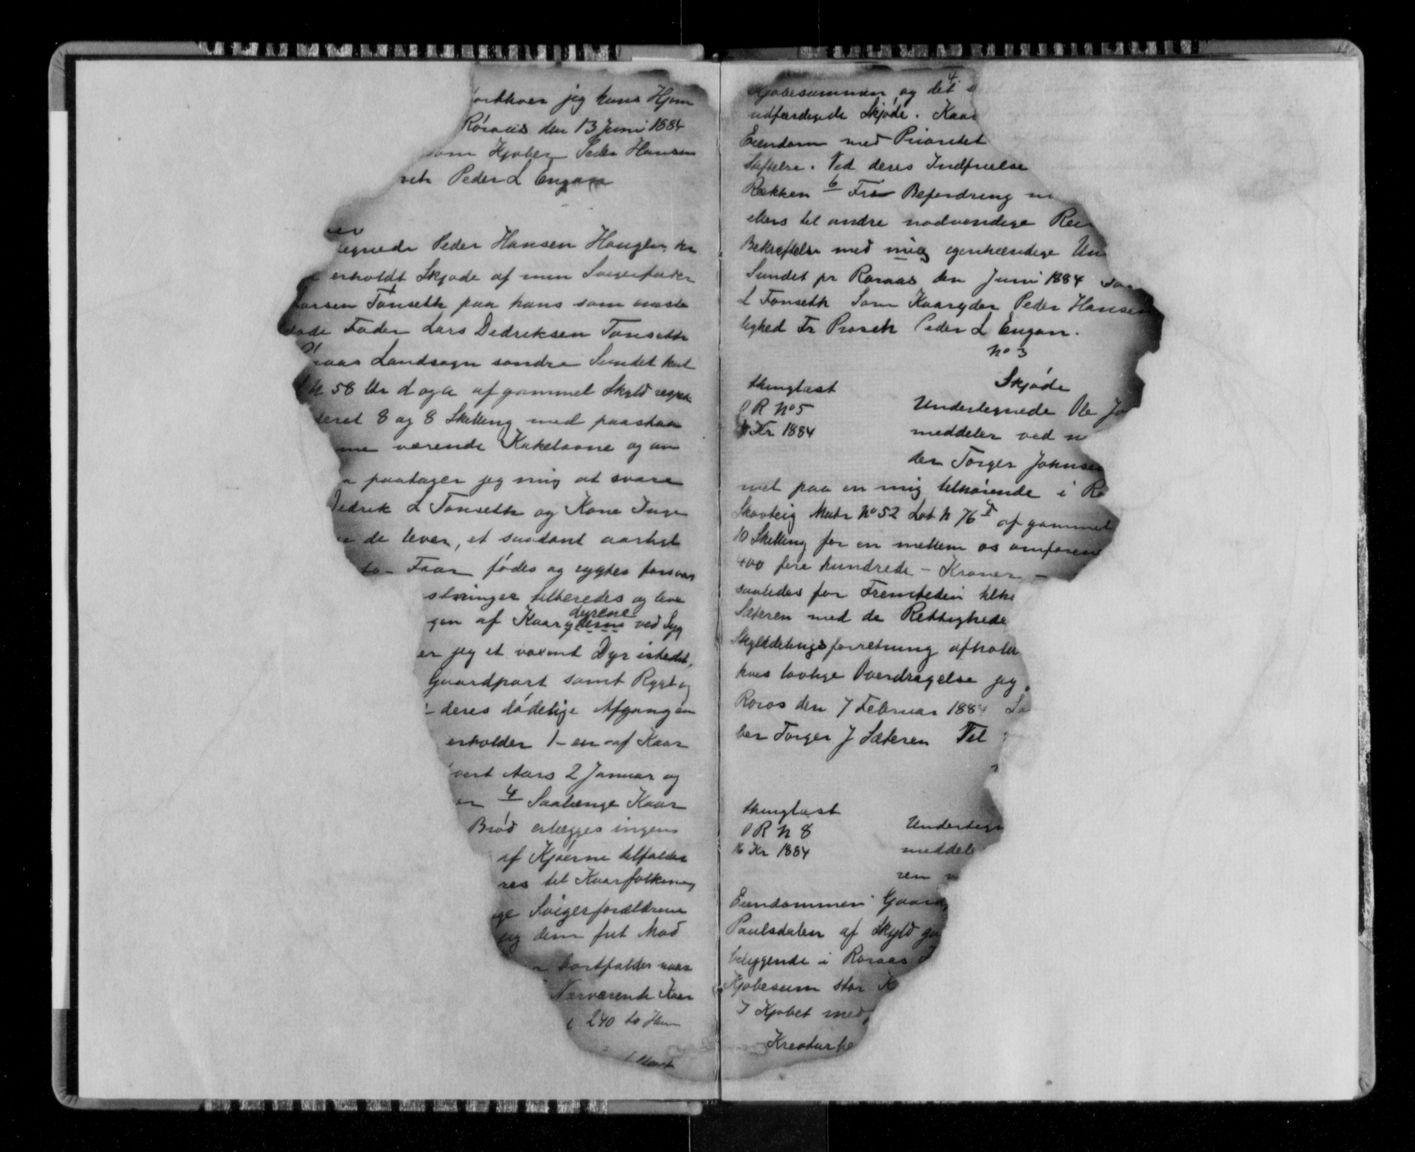 jeg hans Hjem
Röraas den 13 Juni 1884
som Kjøber Peder Hansen
Peder L Engan
tegnede Peder Hansen Haugen
erholdt Skjøde af min Svigerfader
Larsen Tønseth paa hans som
Fader Lars Dedriksen Tønseth
raas Landsogn søndre Sundet kal
N 58 Ur d og a af gammel Skyld
teret 8 og 8 Skilling med paastaa
me værende Kakelovne og an
paatager jeg mig at svare
Dedrik L Tønseth og Kone Inge
de lever, et saadant aarligt
to - Faar födes og rygtes forsvar
ninger tilberedes og leve
gen af Kaarydyrene ved Syg
er jeg et voxent Dyr istedet,
Gaardpart samt Rygt og
deres dödelige Afgang en
erholder 1 - en - af Kaar
vert Aars 2 Januar og
4 Saalænge Kaar
Bröd erlægges ingen
af Kjöerne tilfalder
res til Kaarfolkene
ge Svigerforældrene
jeg dem frit Mad
bortfalder naar
Nærværende Kaar
240 to Hun
4.
Kjøbesummen og det
udfærdigede Skjøde. Kaar
Eiendom med Prioritet
Hæftelse. Ved deres Indfrielse
Rækken 6 Fri Befordring
ellers til andre nødvendige Rei
Bekræftelse med min egenhændige Un
Sundet pr Røraas den Juni 1884
L Tønseth Som Kaaryder Peder Hansen
lighed Fr Prosch Peder L Engan.
No 3
Skjöde
thinglæst
P R No 5
Kr 1884
Undertegnede Ole Jo
meddeler ved
den Torger Johnsen
net paa en mig tilhörende i Rö
Skovteig Matr No 52 Løb N 76 af gammel
10 Skilling for en mellem os omforen
400 fire hundrede - Kroner -
saaledes for Fremtiden tilhö
Sæteren med de Rettighede
Skylddelingsforretning afhold
hvis lovlige Overdragelse jeg
Röros den 7 Februar 1884
ber Torger J Sæteren Til
thinglæst
P R N 8
16 Kr 1884
Undertegn
meddele
ren
Eiendommen Gaard
Paulsdalen af Skyld
beliggende i Røraas
Kjøbesum stor K
Kjøbet med
Kreatur